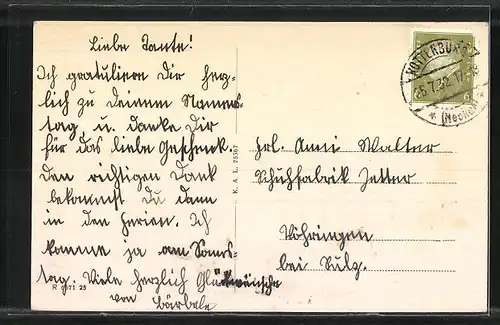 Liebe Tante!
Ich gratuliere Dir herz-
lich zu Deinem Namens-
tag, u. danke Dir
für das liebe Geschenk.
Den richtigen Dank
bekommst Du dann
in den Ferien. Ich
komme ja am Sams-
tag. Viele herzlich Glückwünsche
von Bärbele
R 6971 25
K. A. L. 25367
ROTTENBURG
26.7.32.17
* (Neckar)
Frl. Ami Walter
Schuhfabrik Zetter
Vöhringen
bei Sulz.